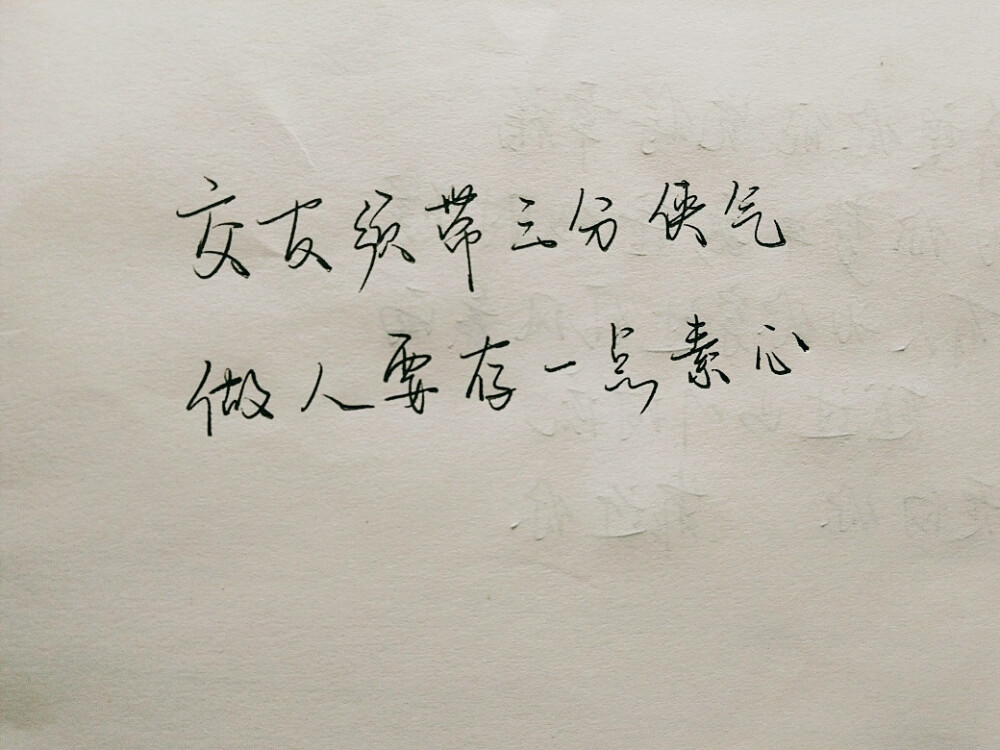 交友须带三分侠气
做人要存一点素心